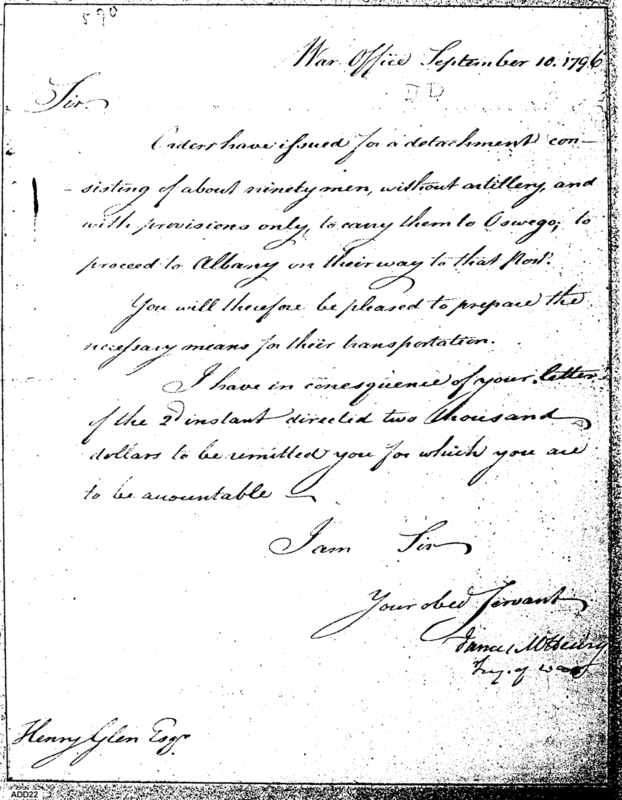 590
War Office September 10. 1796
Sir.
Orders have issued for a detachment con-
-sisting of about ninety men, without artillery, and
with provisions only, to carry them to Oswego; to
proceed to Albany on their way to that Post.
You will therefore be pleased to prepare the
necessary means for their transportation.
I have in conesquence of your letter
of the 2d instant directed two thousand
dollars to be remitted you for which you are
to be accountable
I am Sir
Your obed Servant
James McHenry
Secy. of war
Henry Glen Esqr
ADD22